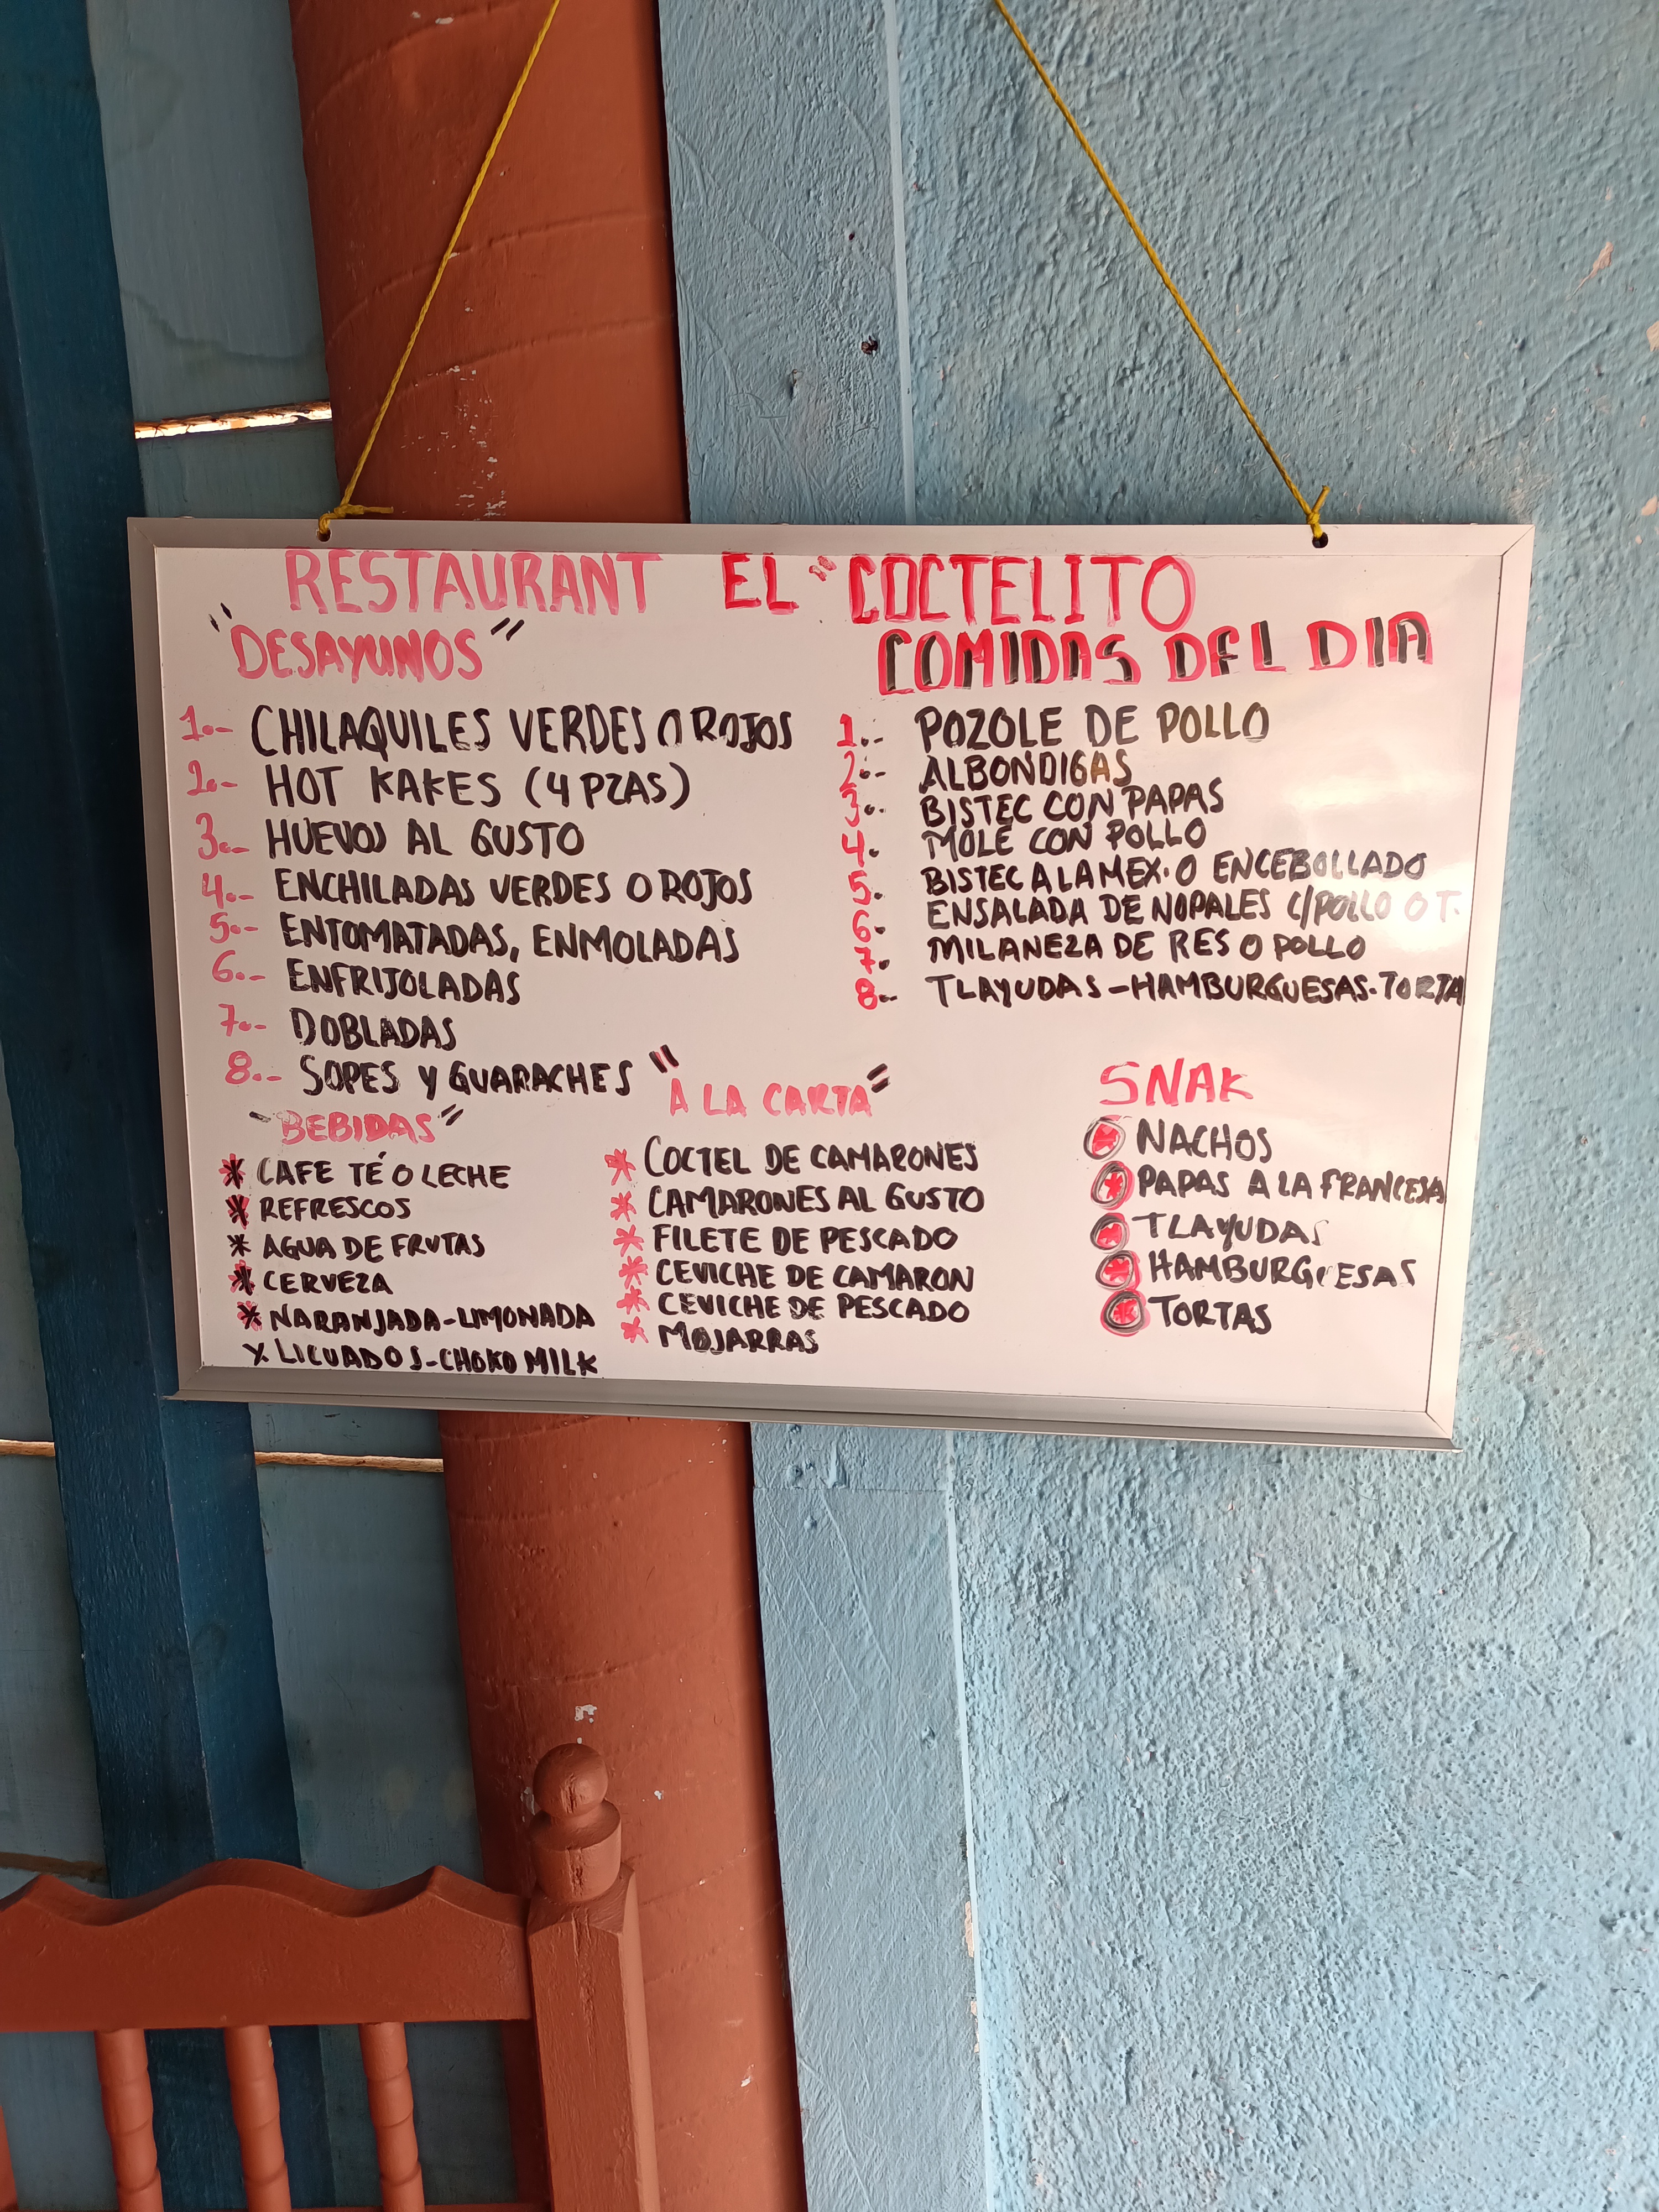 RESTAURANT EL "COCTELITO
"DESAYUNOS"
1.- CHILAQUILES VERDES O ROJOS
2.- HOT KAKES (4 PZAS)
3.- HUEVOS AL GUSTO
4.- ENCHILADAS VERDES O ROJOS
5.- ENTOMATADAS, ENMOLADAS
6.- ENFRIJOLADAS
7.- DOBLADAS
8.- SOPES Y GUARACHES
COMIDAS DEL DIA
1.- POZOLE DE POLLO
2.- ALBONDIGAS
3.- BISTEC CON PAPAS
4. MOLE CON POLLO
5. BISTEC A LA MEX. O ENCEBOLLADO
6. ENSALADA DE NOPALES C/POLLO O T.
7. MILANEZA DE RES O POLLO
8.- TLAYUDAS-HAMBURGUESAS.TORTA
"BEBIDAS"
* CAFE TÉ O LECHE
* REFRESCOS
* AGUA DE FRUTAS
* CERVEZA
* NARANJADA-LIMONADA
x LICUADOS-CHOKO MILK
"A LA CARTA"
* COCTEL DE CAMARONES
* CAMARONES AL GUSTO
* FILETE DE PESCADO
* CEVICHE DE CAMARON
* CEVICHE DE PESCADO
* MOJARRAS
SNAK
* NACHOS
* PAPAS A LA FRANCESA
* TLAYUDAS
* HAMBURGUESAS
* TORTAS